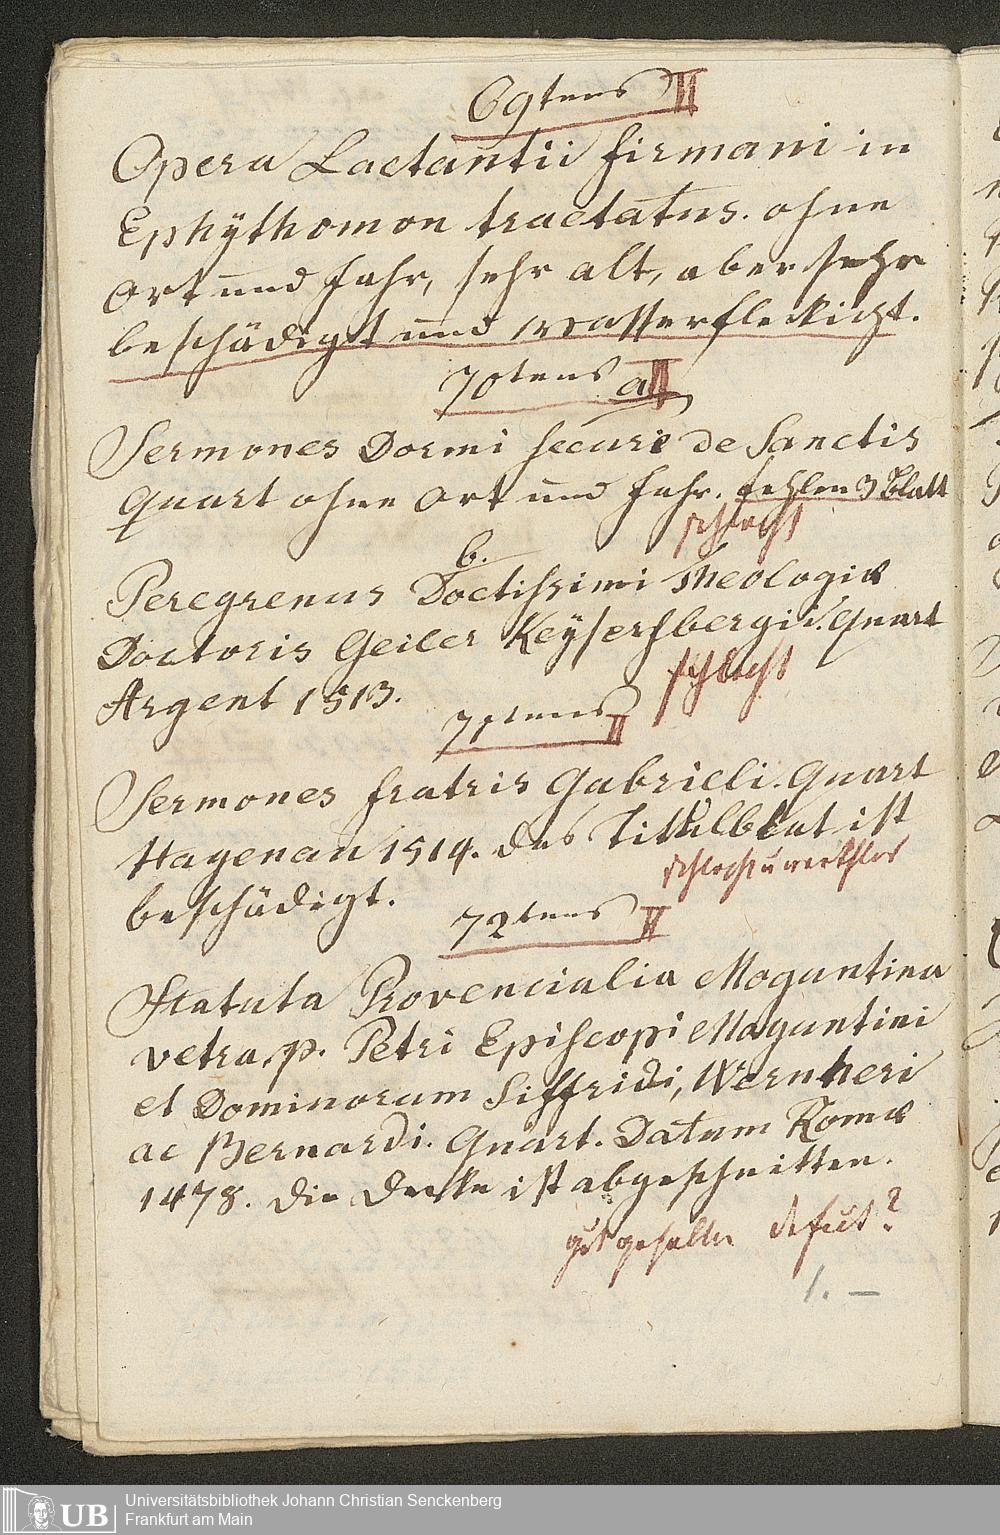 69tens II
Opera Lactantii firmani in
Ephÿthomon tractatus. ohne
Ort und Jahr, sehr alt, aber sehr
beschädigt und wasserfleckigt.
70tens a II
Sermones Dormi secure de Sanctis
Quart ohne Ort und Jahr. fehlen 3 Blatt
schlecht
b.
Peregrenus Doctissimi Theologiæ
Doctoris Geiler Keÿsersbergii. Quart
schlecht
Argent 1513.
71tens II
Sermones fratris Gabrieli. Quart
Hagenau 1514. das Tittelblat ist
schlecht u werthlos
beschädigt.
72tens II
Statuta Provencialia Moguntina
vetra, p. Petri Episcopi Moguntini
et Dominorum Siffridi, Wernheri
ac Bernardi. Quart. Datum Romæ
1478. die Decke ist abgeschnitten.
gut gehalten defect?
1. –
Universitätsbibliothek Johann Christian Senckenberg
Frankfurt am Main
UB